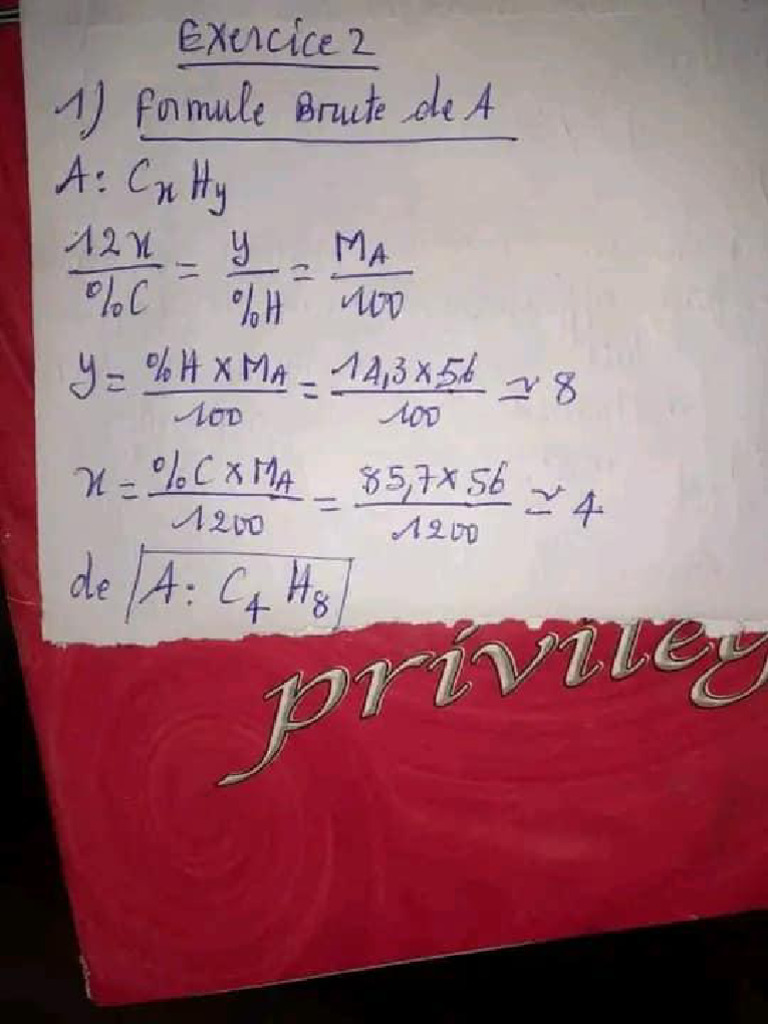 Exercice 2
1) Formule Brute de A
A: CxHy
12x/%C = y/%H = MA/100
y = %H x MA/100 = 14,3 x 56/100 ≃ 8
x = %C x MA/1200 = 85,7 x 56/1200 ≃ 4
de A: C4 H8
privileg